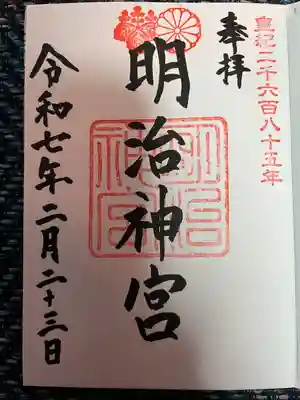 皇紀二千六百八十五年
奉拝
明治神宮
明治神宮
令和七年二月二十三日